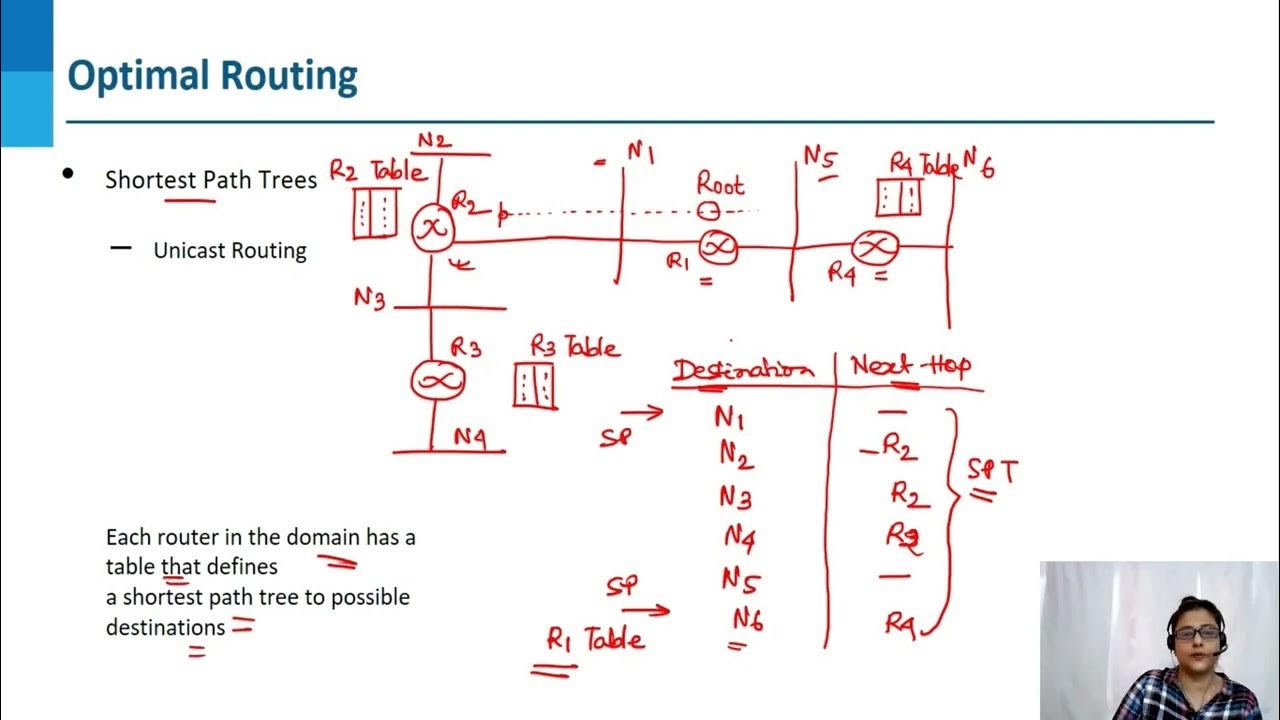 Optimal Routing
• Shortest Path Trees
– Unicast Routing
N2
R2 Table
R2
N1
Root
N5
R4 Table
N6
R1
R4
N3
R3
R3 Table
N4
Destination Next-Hop
SP → N1 —
N2 – R2
N3 R2
N4 R2
N5 —
SP → N6 R4
SPT
R1 Table
Each router in the domain has a
table that defines
a shortest path tree to possible
destinations